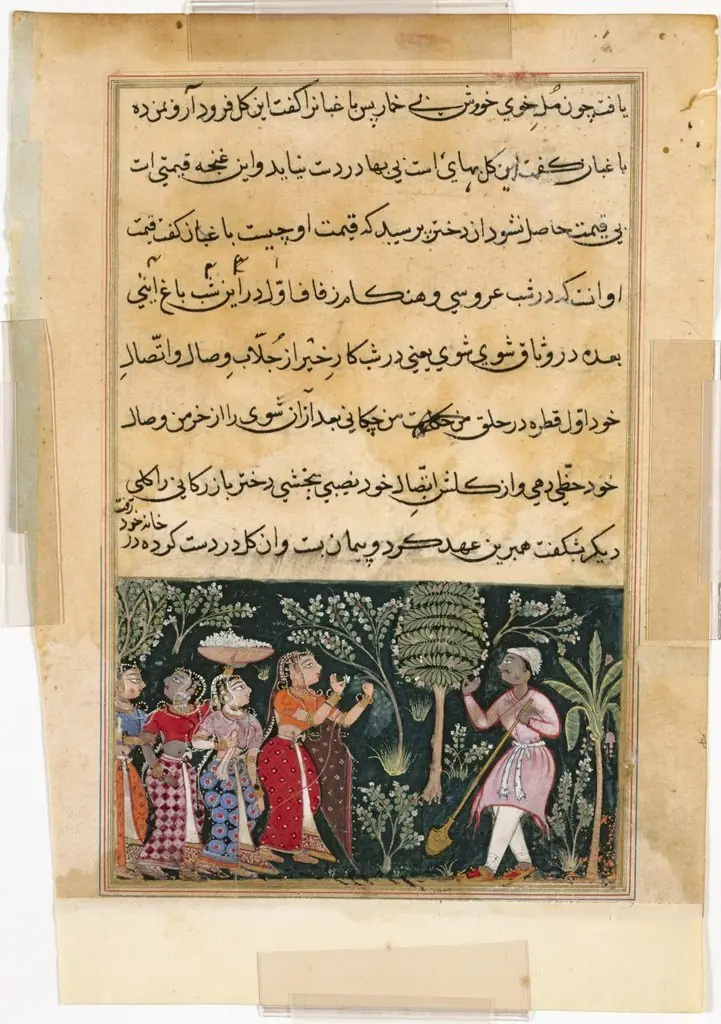 یافت چون مُل خوی خورش بی خمار پس باغبانرا گفت این کل فرود آر و بمن ده
باغبان کفت این کل بهای است بی بها در دست نیاید و این غنچه قیمتی است
بی قیمت حاصل نشود از دختر پرسید که قیمت او چیست باغبان کفت قیمت
او انست که در شب عروسی و هنکام زفاف اوّل در این شب باغ ائی
بعده در وثاق شوی شوی یعنی در شب کار خیر از جُلّاب وصال و اتّصال
خود اوّل قطره در حلق من چکانی بعد ازان شوی را از خرمن وصال
خود حظّی دهی و از کلشن اتّصال خود نصیبی بخشی دختر بازرکانی را کلی
دیکر بشکفت همبرین عهد کرد و پیمان بست و ان کل در دست کرده در
خانه خود رفت